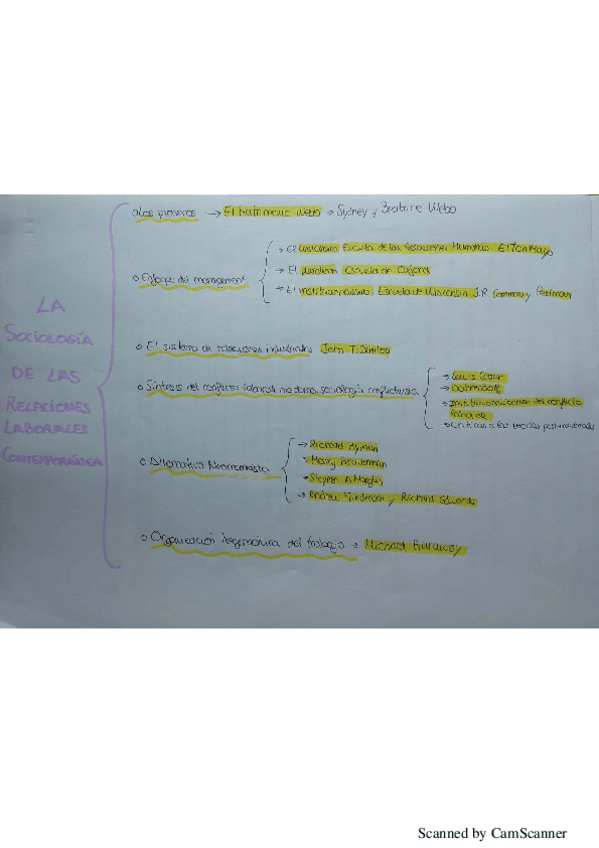 LA
SOCIOLOGÍA
DE LAS
RELACIONES
LABORALES
CONTEMPORÁNEA
Los pioneros → El Matrimonio Webb → Sydney y Beatrice Webb
Enfoque del management
→ El unitarismo Escuela de las Relaciones Humanas Elton Mayo
→ El pluralismo Escuela de Oxford
→ El institucionalismo, Escuela de Wisconsin J.R. Commons y Perlman
El sistema de relaciones industriales John T. Dunlop
Síntesis del conflicto laboral moderno, sociología
→ Lewis Coser
→ Dahrendorf
→ Institucionalización del conflicto
→ Críticas a las teorías
Alternativa Neomarxista
→ Richard Hyman
→ Harry Braverman
→ Stephen A. Marglin
→ Andrew Friedman y Richard Edwards
Organización hegemónica del trabajo → Michael Burawoy
Scanned by CamScanner